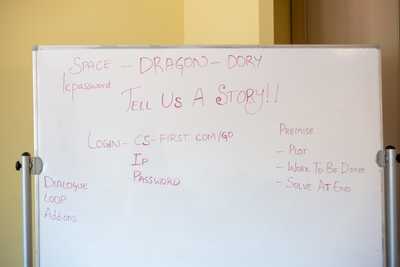 SPACE - DRAGON - DORY
icpassword
TELL US A STORY!!
LOGIN - CS-FIRST.COM/GO
ID
PASSWORD
PREMISE
- PLOT
- WORK TO BE DONE
- SOLVE AT END
DIALOGUE
LOOP
Add-ons